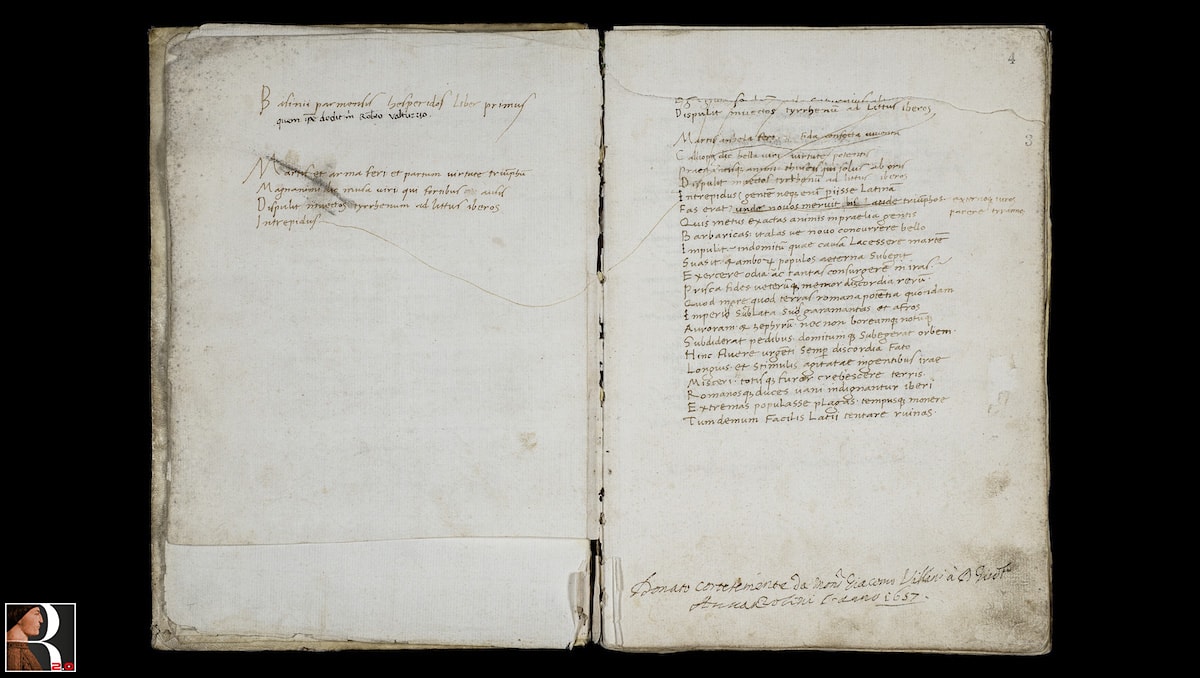 Basinii parmensis hesperidos liber primus
quem ipse dedit in Robto valturrio.
Martis et arma feri et partum virtute triūphū
Magnanimi dic musa viri qui fortibus ausis
Dispulit invectos tyrrhenum ad littus iberos
Intrepidus
4
Dispulit invectos tyrrhenū ad littus iberos
3
Martis anhela
Calliope dic bella viri virtute potentis
qui solus ab oris
Dispulit invectos tyrrhenū ad litus iberos
Intrepidus gentē neq; enī piisse Latinā
Fas erat: unde novos meruit Laude triūphos
Quis metus exactas animis in praelia gentis
Barbaricas: italas ve novo concurrere bello
Impulit: indomitū quae causa Lacessere martē
Suasit: & ambo populos aeterna Subegit
Exercere odia: ac tantas consurgere in iras.
Prisca fides veterūq; memor discordia rerū
Quod mare quod terras romana potētia quondam
Imperio Sublata Suo garamantas et afros
Auroram & zephyrū nec non boreamq; notūq;
Subdiderat pedibus: domitumq; Subegerat orbem.
Hinc fluere urgēti Semp discordia Fato
Longius: et Stimulis agitatae ingentibus irae
Misceri: totisq; furor crebescere terris.
Romanosq; duces vani indignantur iberi
Extremas populasse plagas: tempusq; monere
Tum demum Facilis Latii tentare ruinas.
Donato cortesemente da Monr Giacomo Villani à
l'anno 1657.
R
2.0